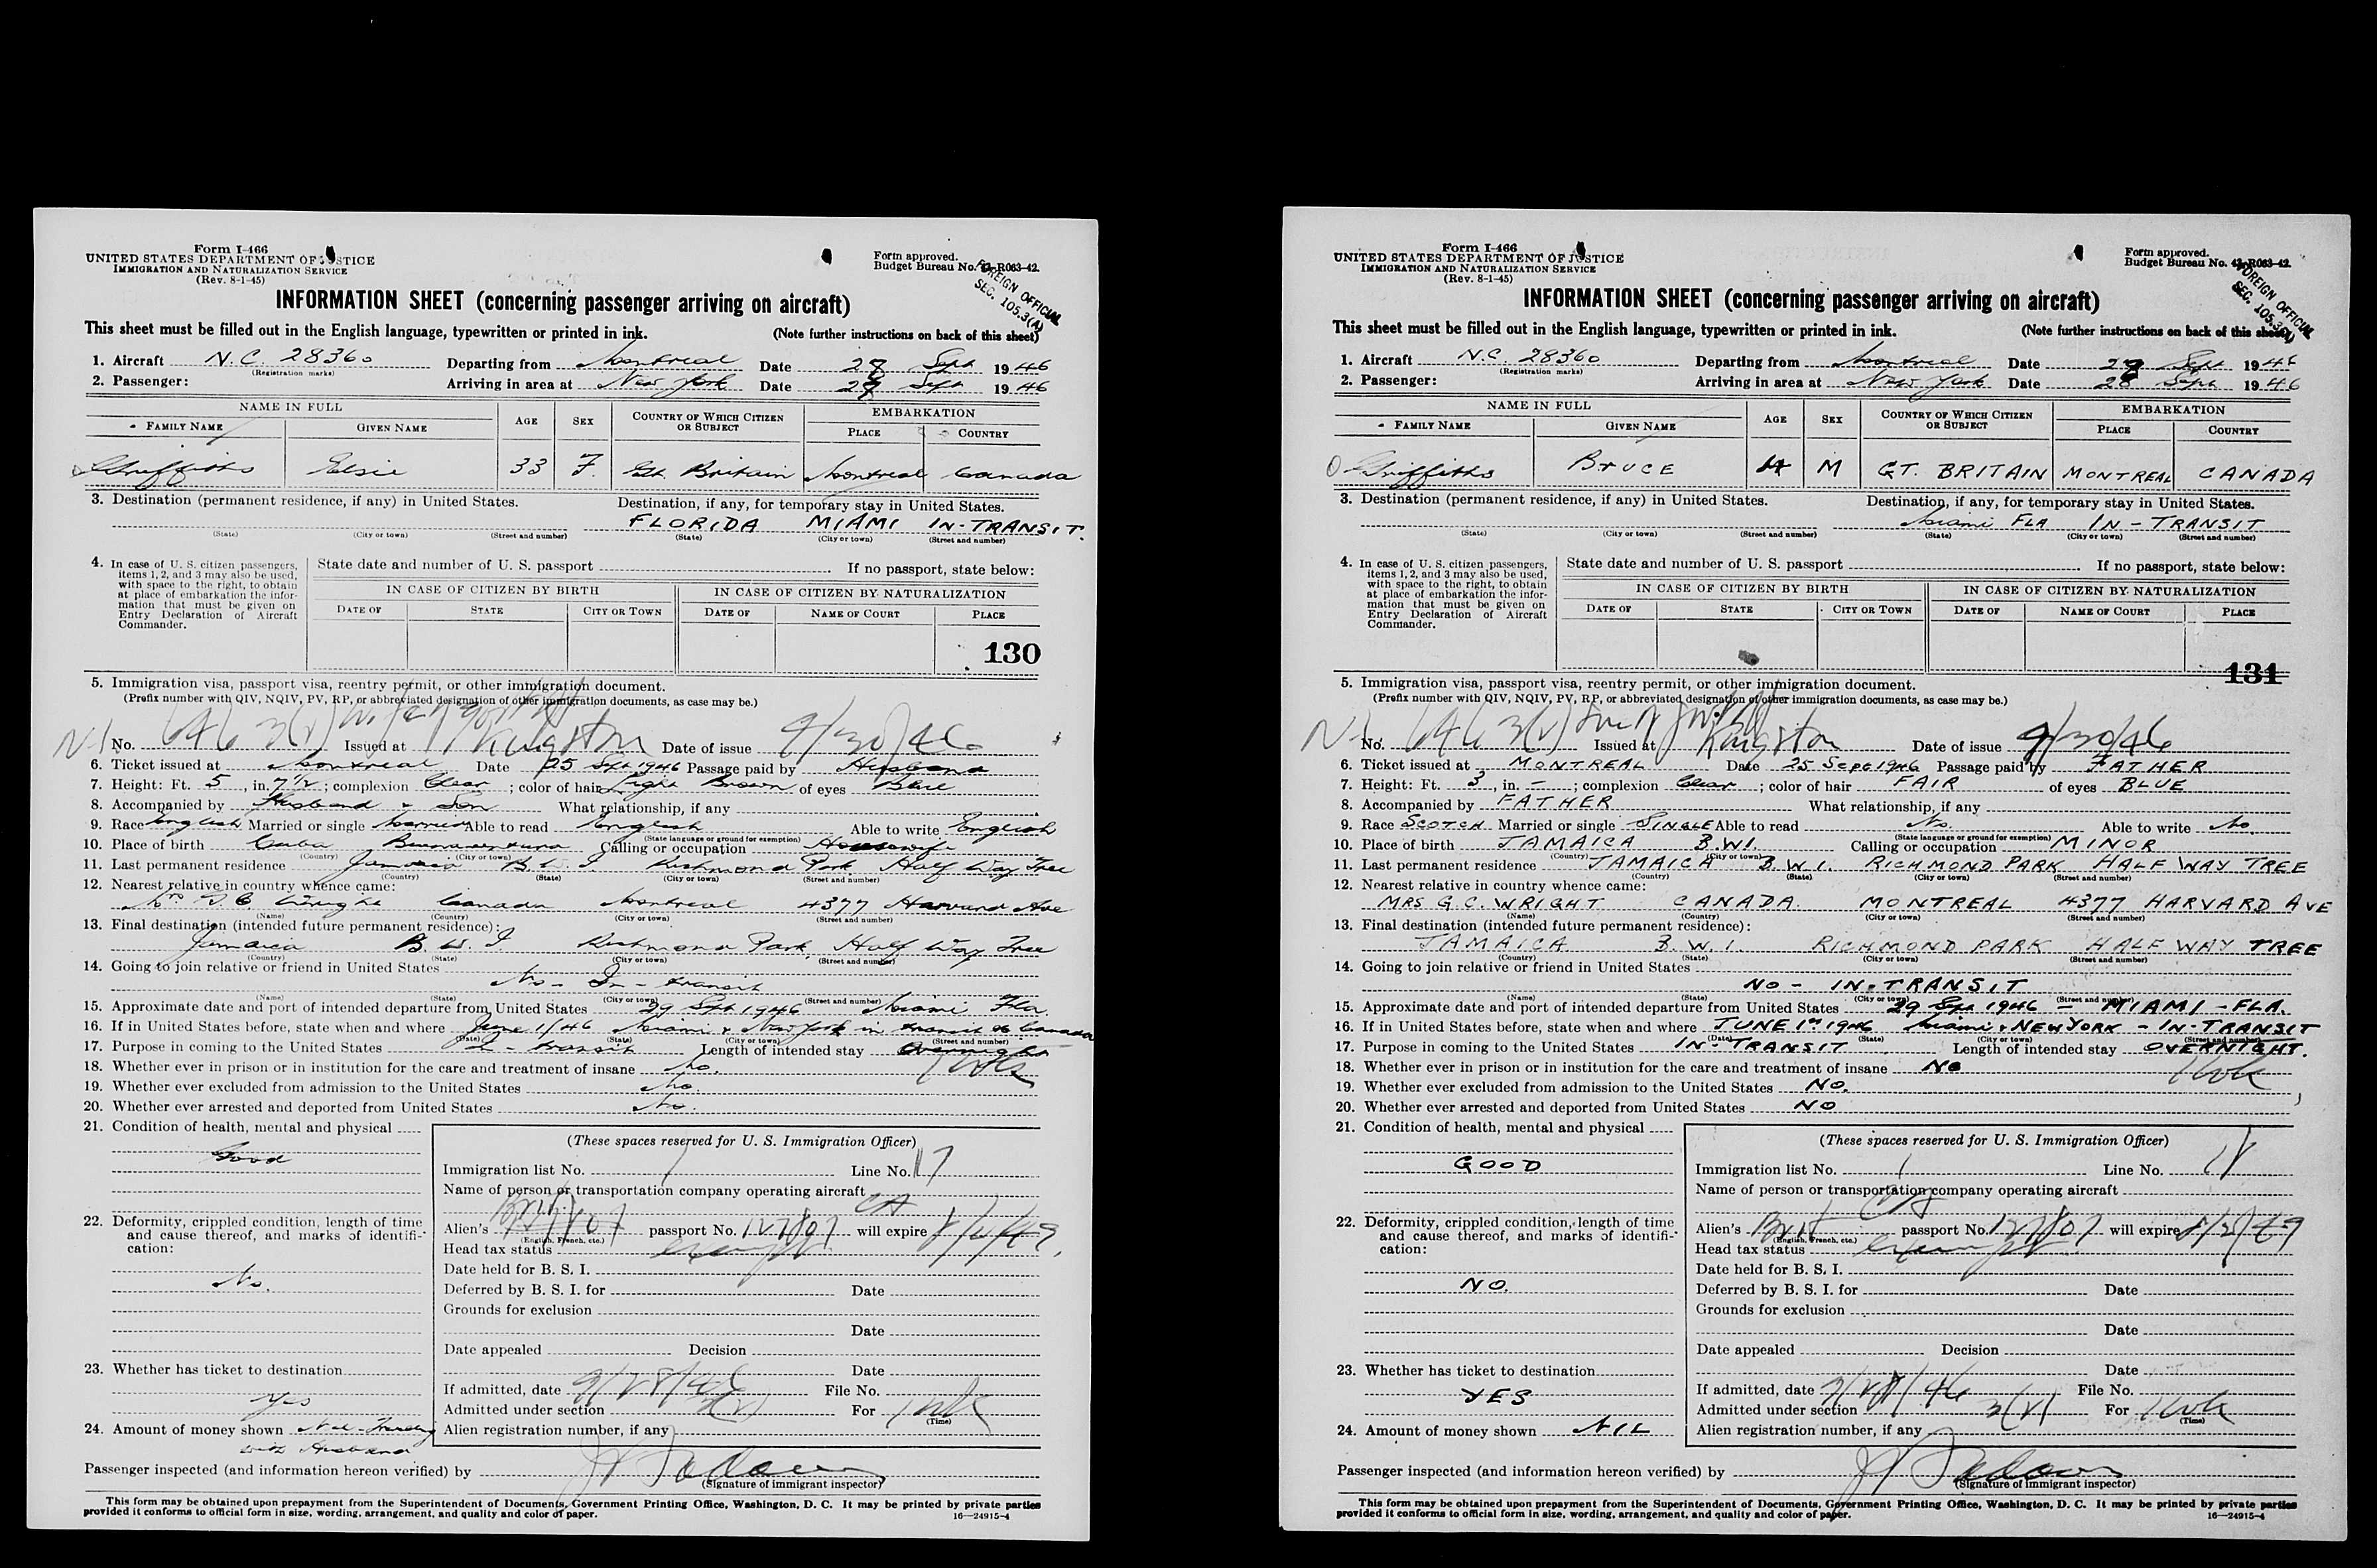 Form I-466
UNITED STATES DEPARTMENT OF JUSTICE
IMMIGRATION AND NATURALIZATION SERVICE
(Rev. 8-1-45)
Form approved.
Budget Bureau No. 43-R063-42.
FOREIGN OFFICIAL
SEC. 105.3(A)
INFORMATION SHEET (concerning passenger arriving on aircraft)
This sheet must be filled out in the English language, typewritten or printed in ink. (Note further instructions on back of this sheet)
1. Aircraft N.C. 28360 Departing from Montreal Date 28 Sept 1946
(Registration marks)
2. Passenger: Arriving in area at New York Date 28 Sept 1946
NAME IN FULL AGE SEX COUNTRY OF WHICH CITIZEN OR SUBJECT EMBARKATION
FAMILY NAME GIVEN NAME PLACE COUNTRY
Griffiths Elsie 33 F. Gt. Britain Montreal Canada
3. Destination (permanent residence, if any) in United States. Destination, if any, for temporary stay in United States.
FLORIDA MIAMI IN-TRANSIT.
(State) (City or town) (Street and number) (State) (City or town) (Street and number)
4. In case of U. S. citizen passengers, items 1, 2, and 3 may also be used, with space to the right, to obtain at place of embarkation the information that must be given on Entry Declaration of Aircraft Commander.
State date and number of U. S. passport If no passport, state below:
IN CASE OF CITIZEN BY BIRTH IN CASE OF CITIZEN BY NATURALIZATION
DATE OF STATE CITY OR TOWN DATE OF NAME OF COURT PLACE
130
5. Immigration visa, passport visa, reentry permit, or other immigration document.
(Prefix number with QIV, NQIV, PV, RP, or abbreviated designation of other immigration documents, as case may be.)
No. 646 3(2) Issued at Kingston Date of issue 9/30/46
6. Ticket issued at Montreal Date 25 Sept 1946 Passage paid by Husband
7. Height: Ft. 5, in. 7 1/2; complexion Clear; color of hair Light Brown of eyes Blue
8. Accompanied by Husband & Son What relationship, if any
9. Race English Married or single Married Able to read English Able to write English
(State language or ground for exemption)
10. Place of birth Cuba Buenaventura Calling or occupation Housewife
(Country) (City or town)
11. Last permanent residence Jamaica B.W.I. Richmond Park Half Way Tree
(Country) (State) (City or town) (Street and number)
12. Nearest relative in country whence came:
Mrs G.C. Wright Canada Montreal 4377 Harvard Ave
(Name) (Country) (City or town) (Street and number)
13. Final destination (intended future permanent residence):
Jamaica B.W.I Richmond Park, Half Way Tree
(Country) (State) (City or town) (Street and number)
14. Going to join relative or friend in United States
No - In - transit
(Name) (State) (City or town) (Street and number)
15. Approximate date and port of intended departure from United States 29 Sept 1946 Miami Fla.
16. If in United States before, state when and where June 1/46 Miami & New York in transit to Canada
(Date) (State) (City or town) (Street and number)
17. Purpose in coming to the United States In - transit Length of intended stay Overnight
18. Whether ever in prison or in institution for the care and treatment of insane No.
19. Whether ever excluded from admission to the United States No.
20. Whether ever arrested and deported from United States No.
21. Condition of health, mental and physical
Good
22. Deformity, crippled condition, length of time and cause thereof, and marks of identification:
No.
23. Whether has ticket to destination
Yes
24. Amount of money shown Nil - Traveling
with Husband
(These spaces reserved for U. S. Immigration Officer)
Immigration list No. 1 Line No. 17
Name of person or transportation company operating aircraft CA
Alien's Brit passport No. 127807 will expire
(English, French, etc.)
Head tax status exempt
Date held for B. S. I.
Deferred by B. S. I. for Date
Grounds for exclusion
Date
Date appealed Decision
Date
If admitted, date 9/28/46 File No.
Admitted under section 3(2) For 1 wk
(Time)
Alien registration number, if any
Passenger inspected (and information hereon verified) by
(Signature of immigrant inspector)
This form may be obtained upon prepayment from the Superintendent of Documents, Government Printing Office, Washington, D. C. It may be printed by private parties
provided it conforms to official form in size, wording, arrangement, and quality and color of paper. 16—24915-4
Form I-466
UNITED STATES DEPARTMENT OF JUSTICE
IMMIGRATION AND NATURALIZATION SERVICE
(Rev. 8-1-45)
Form approved.
Budget Bureau No. 43-R063-42.
FOREIGN OFFICIAL
SEC. 105.3(A)
INFORMATION SHEET (concerning passenger arriving on aircraft)
This sheet must be filled out in the English language, typewritten or printed in ink. (Note further instructions on back of this sheet)
1. Aircraft N.C. 28360 Departing from Montreal Date 28 Sept 1946
(Registration marks)
2. Passenger: Arriving in area at New York Date 28 Sept 1946
NAME IN FULL AGE SEX COUNTRY OF WHICH CITIZEN OR SUBJECT EMBARKATION
FAMILY NAME GIVEN NAME PLACE COUNTRY
Griffiths BRUCE 4 M GT. BRITAIN MONTREAL CANADA
3. Destination (permanent residence, if any) in United States. Destination, if any, for temporary stay in United States.
Miami FLA IN-TRANSIT
(State) (City or town) (Street and number) (State) (City or town) (Street and number)
4. In case of U. S. citizen passengers, items 1, 2, and 3 may also be used, with space to the right, to obtain at place of embarkation the information that must be given on Entry Declaration of Aircraft Commander.
State date and number of U. S. passport If no passport, state below:
IN CASE OF CITIZEN BY BIRTH IN CASE OF CITIZEN BY NATURALIZATION
DATE OF STATE CITY OR TOWN DATE OF NAME OF COURT PLACE
131
5. Immigration visa, passport visa, reentry permit, or other immigration document.
(Prefix number with QIV, NQIV, PV, RP, or abbreviated designation of other immigration documents, as case may be.)
No. 646 3(2) Issued at Kingston Date of issue 9/30/46
6. Ticket issued at MONTREAL Date 25 Sept 1946 Passage paid by FATHER
7. Height: Ft. 3, in. -; complexion Clear; color of hair FAIR of eyes BLUE
8. Accompanied by FATHER What relationship, if any
9. Race SCOTCH Married or single SINGLE Able to read No. Able to write No.
(State language or ground for exemption)
10. Place of birth JAMAICA B.W.I. Calling or occupation MINOR
(Country) (City or town)
11. Last permanent residence JAMAICA B.W.I. RICHMOND PARK HALF WAY TREE
(Country) (State) (City or town) (Street and number)
12. Nearest relative in country whence came:
MRS G.C. WRIGHT CANADA. MONTREAL 4377 HARVARD AVE
(Name) (Country) (City or town) (Street and number)
13. Final destination (intended future permanent residence):
JAMAICA B.W.I. RICHMOND PARK HALF WAY TREE
(Country) (State) (City or town) (Street and number)
14. Going to join relative or friend in United States
NO - IN-TRANSIT
(Name) (State) (City or town) (Street and number)
15. Approximate date and port of intended departure from United States 29 Sept 1946 - MIAMI - FLA.
16. If in United States before, state when and where JUNE 1st 1946 Miami & NEW YORK - IN-TRANSIT
(Date) (State) (City or town) (Street and number)
17. Purpose in coming to the United States IN-TRANSIT Length of intended stay OVERNIGHT.
18. Whether ever in prison or in institution for the care and treatment of insane NO
19. Whether ever excluded from admission to the United States NO.
20. Whether ever arrested and deported from United States NO
21. Condition of health, mental and physical
GOOD
22. Deformity, crippled condition, length of time and cause thereof, and marks of identification:
NO.
23. Whether has ticket to destination
YES
24. Amount of money shown NIL
(These spaces reserved for U. S. Immigration Officer)
Immigration list No. 1 Line No.
Name of person or transportation company operating aircraft CA
Alien's Brit passport No. 127807 will expire
(English, French, etc.)
Head tax status exempt
Date held for B. S. I.
Deferred by B. S. I. for Date
Grounds for exclusion
Date
Date appealed Decision
Date
If admitted, date 9/28/46 File No.
Admitted under section 3(2) For 1 wk
(Time)
Alien registration number, if any
Passenger inspected (and information hereon verified) by
(Signature of immigrant inspector)
This form may be obtained upon prepayment from the Superintendent of Documents, Government Printing Office, Washington, D. C. It may be printed by private parties
provided it conforms to official form in size, wording, arrangement, and quality and color of paper. 16—24915-4